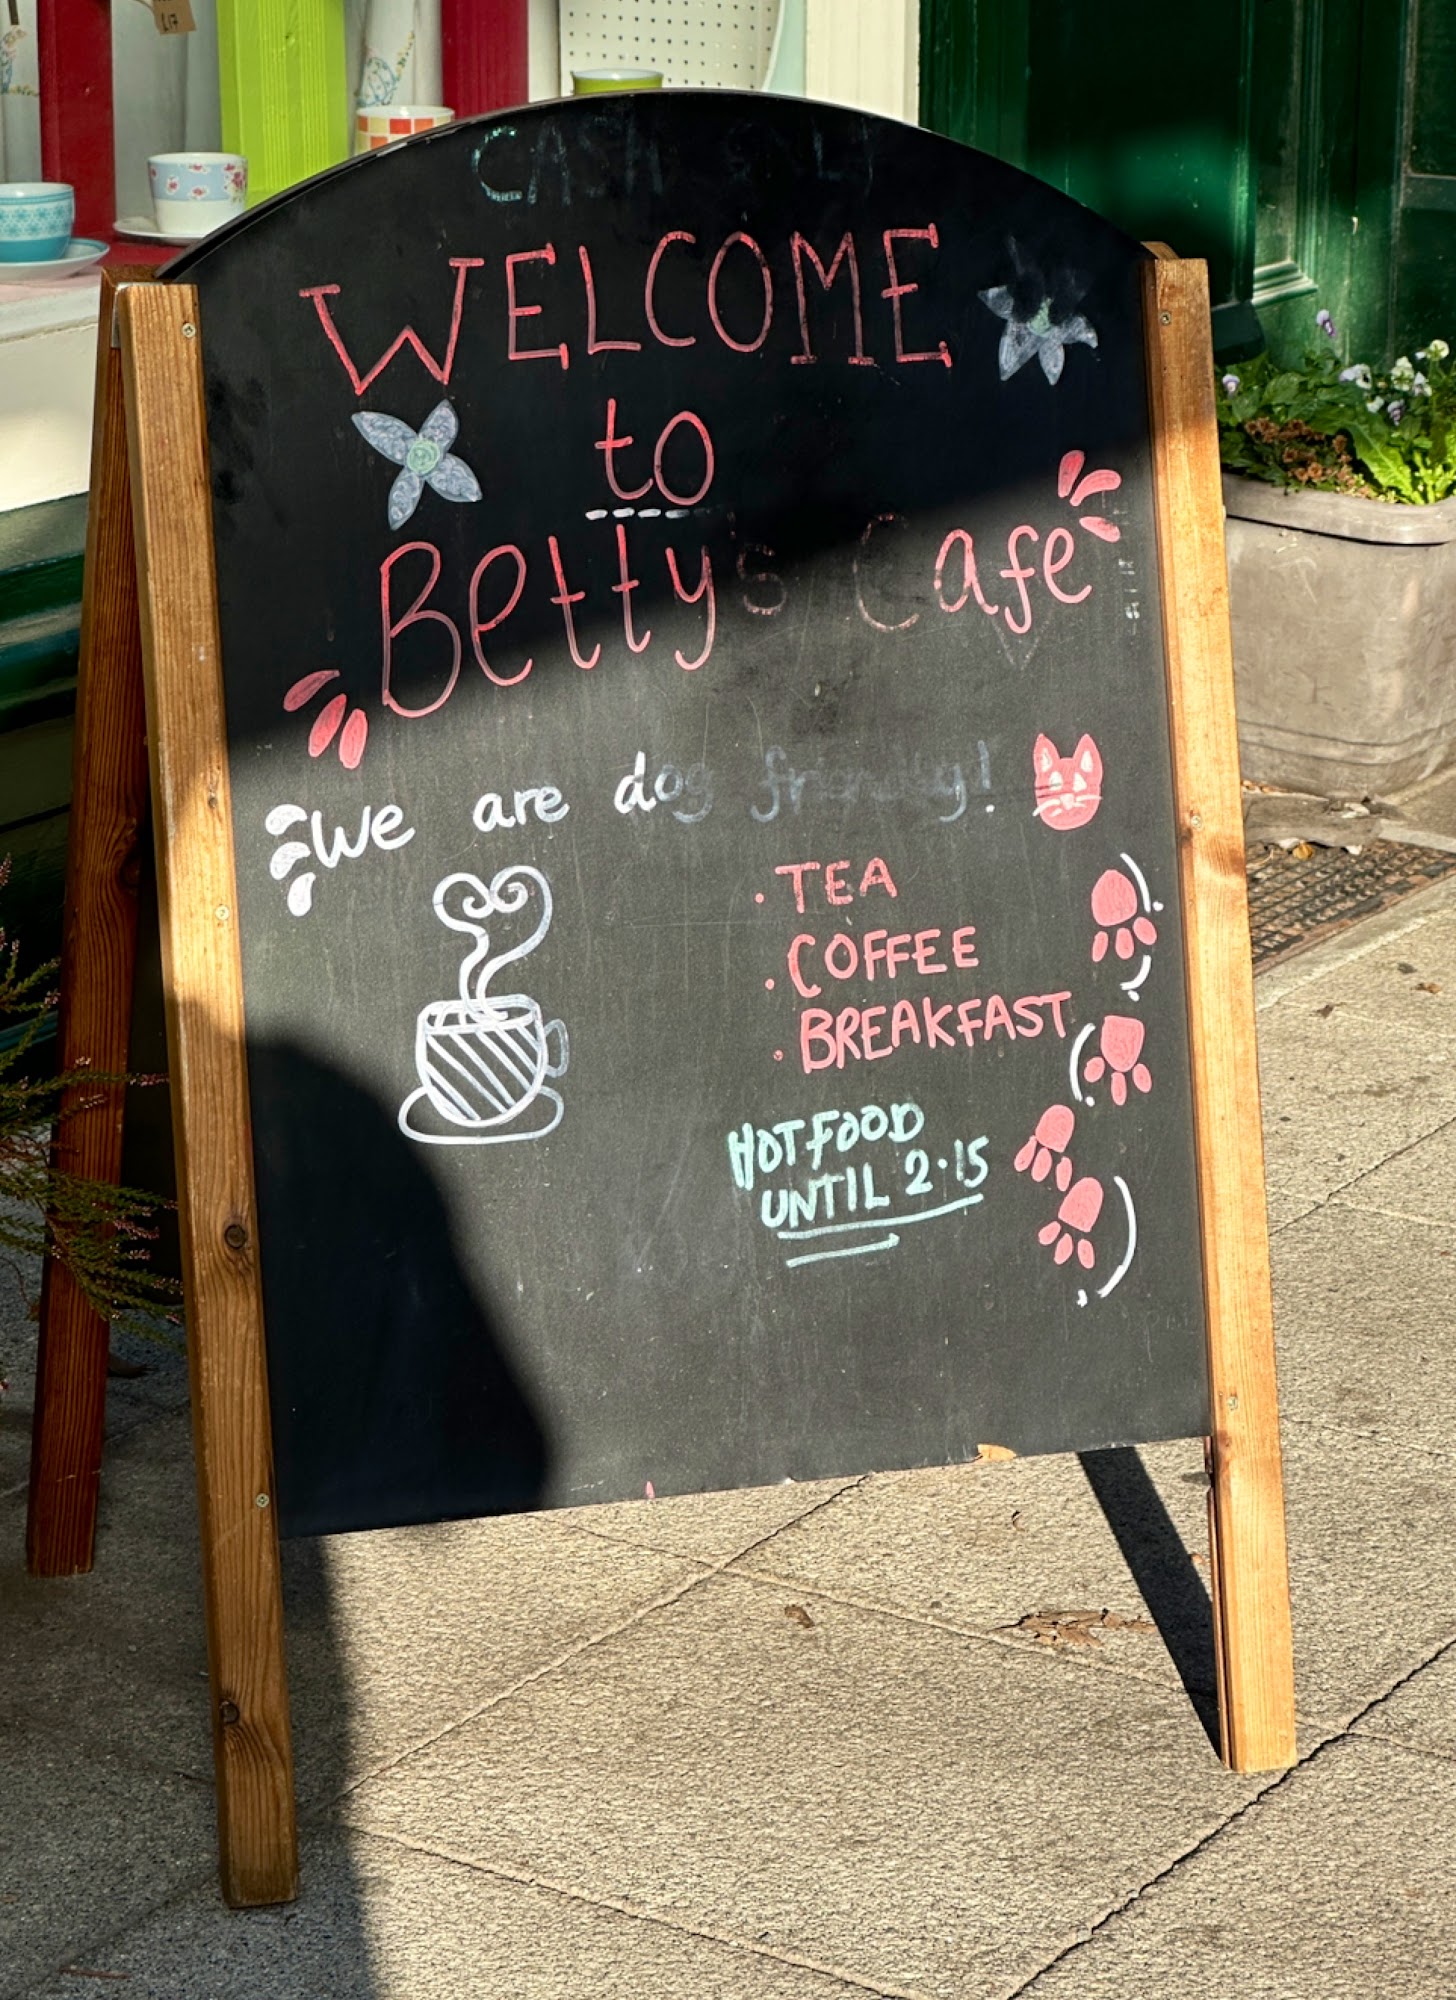 CASH ONLY
WELCOME
to
Betty's Cafe
We are dog friendly!
· TEA
· COFFEE
· BREAKFAST
HOT FOOD
UNTIL 2·15